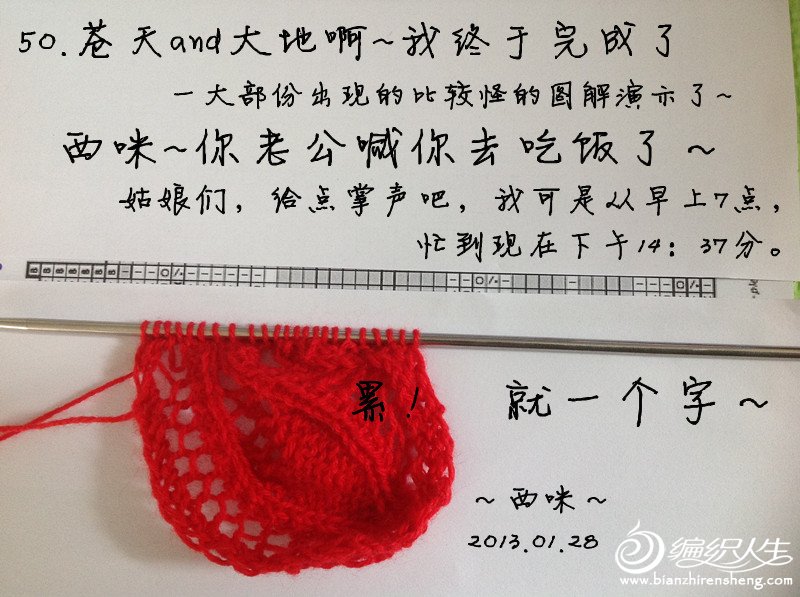 50.苍天and大地啊~我终于完成了
一大部份出现的比较怪的图解演示了~
西咪~你老公喊你去吃饭了~
姑娘们，给点掌声吧，我可是从早上7点，
忙到现在下午14：37分。
累！ 就一个字~
~西咪~
2013.01.28
编织人生
www.bianzhirensheng.com